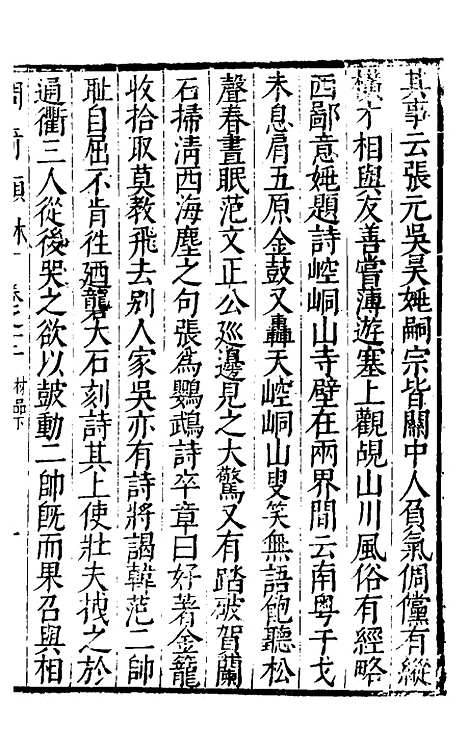 其事云張元吳昊姚嗣宗皆關中人負氣倜儻有縱
橫才相與友善嘗薄遊塞上觀覘山川風俗有經略
西鄙意姚題詩崆峒山寺壁在兩界間云南粵干戈
未息肩五原金鼓又轟天崆峒山叟笑無語飽聽松
聲春晝眠范文正公廵邊見之大驚又有踏破賀蘭
石掃清西海塵之句張為鸚鵡詩卒章曰好著金籠
收拾取莫教飛去别人家吳亦有詩將謁韓范二帥
耻自屈不肯徃廼礱大石刻詩其上使壯夫拽之於
通衢三人從後哭之欲以鼓動二帥旣而果召與相
卷之二 材品下 一